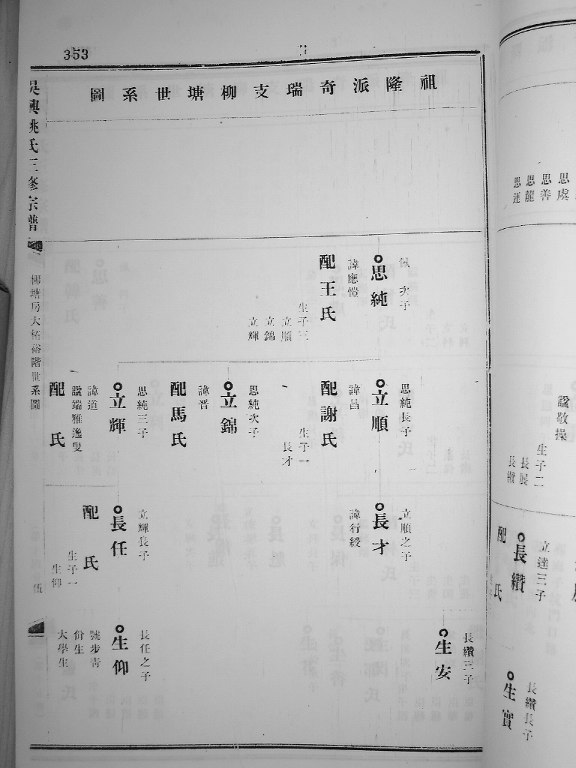 353
祖隆派奇瑞支柳塘世系圖
吳興姚氏三修宗譜
伍
佩次子
思純
諱應愷
配王氏
生子三
立順
立錦
立輝
思純長子
立順
諱昌
配謝氏
生子一
長才
思純次子
立錦
諱晋
配馬氏
思純三子
立輝
諱道
配氏
立順之子
長才
諱行綬
立輝長子
長任
配氏
生子一
生仰
長纘三子
生安
長任之子
生仰
號步青
佾生
大學生
思虞
思善
思龍
思運
諡敬操
生子二
長展
長纘
立達三子
長纘
配氏
長纘長子
生實